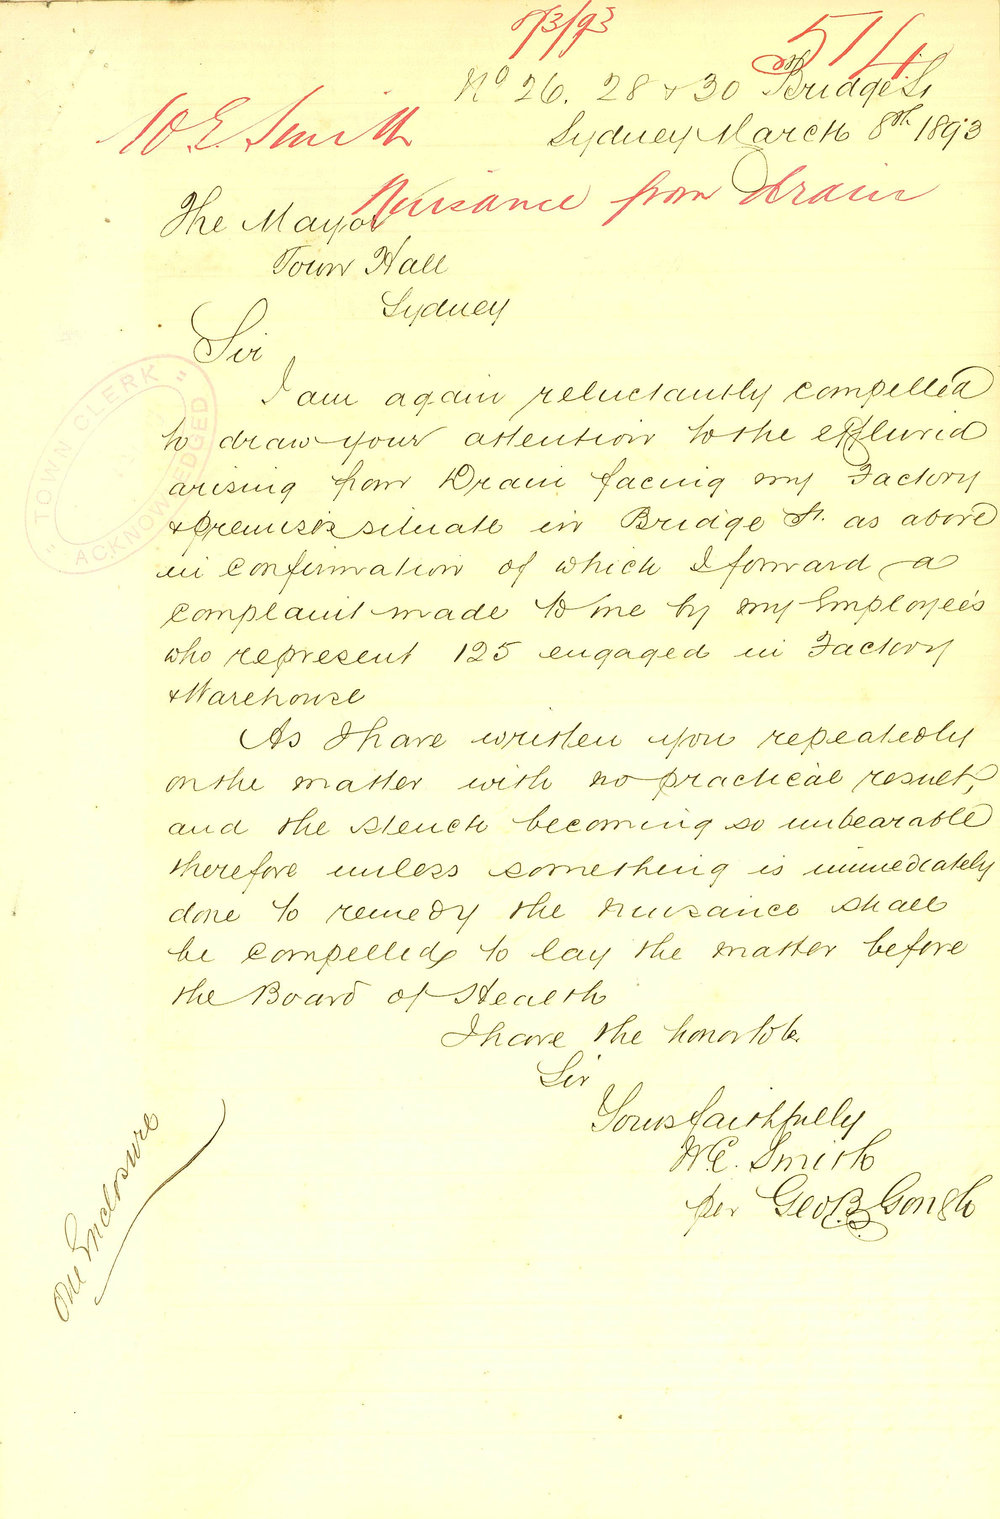 8/3/93
514
No 26. 28 & 30 Bridge St
W E Smith
Sydney March 8th 1893
Nuisance from drain
The Mayor
Town Hall
Sydney
Sir
I am again reluctantly compelled
to draw your attention to the effluvia
arising from Drain facing my Factory
& premises situate in Bridge St. as above
in confirmation of which I forward a
complaint made to me by my Employee's
who represent 125 engaged in Factory
& Warehouse
As I have written you repeatedly
on the matter with no practical result,
and the stench becoming so unbearable
therefore unless something is immediately
done to remedy the nuisance shall
be compelled to lay the matter before
the Board of Health
I have the honor to be
Sir
Yours faithfully
W.E. Smith
per Geo B Gough
One Enclosure
"TOWN CLERK"
ACKNOWLEDGED